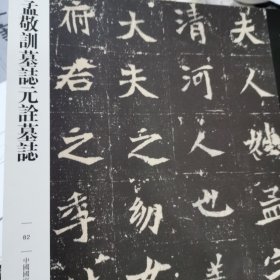 夫人姓
清河人也
大夫之幼女
府君之季
孟敬訓墓誌元詮墓誌
02
中國國